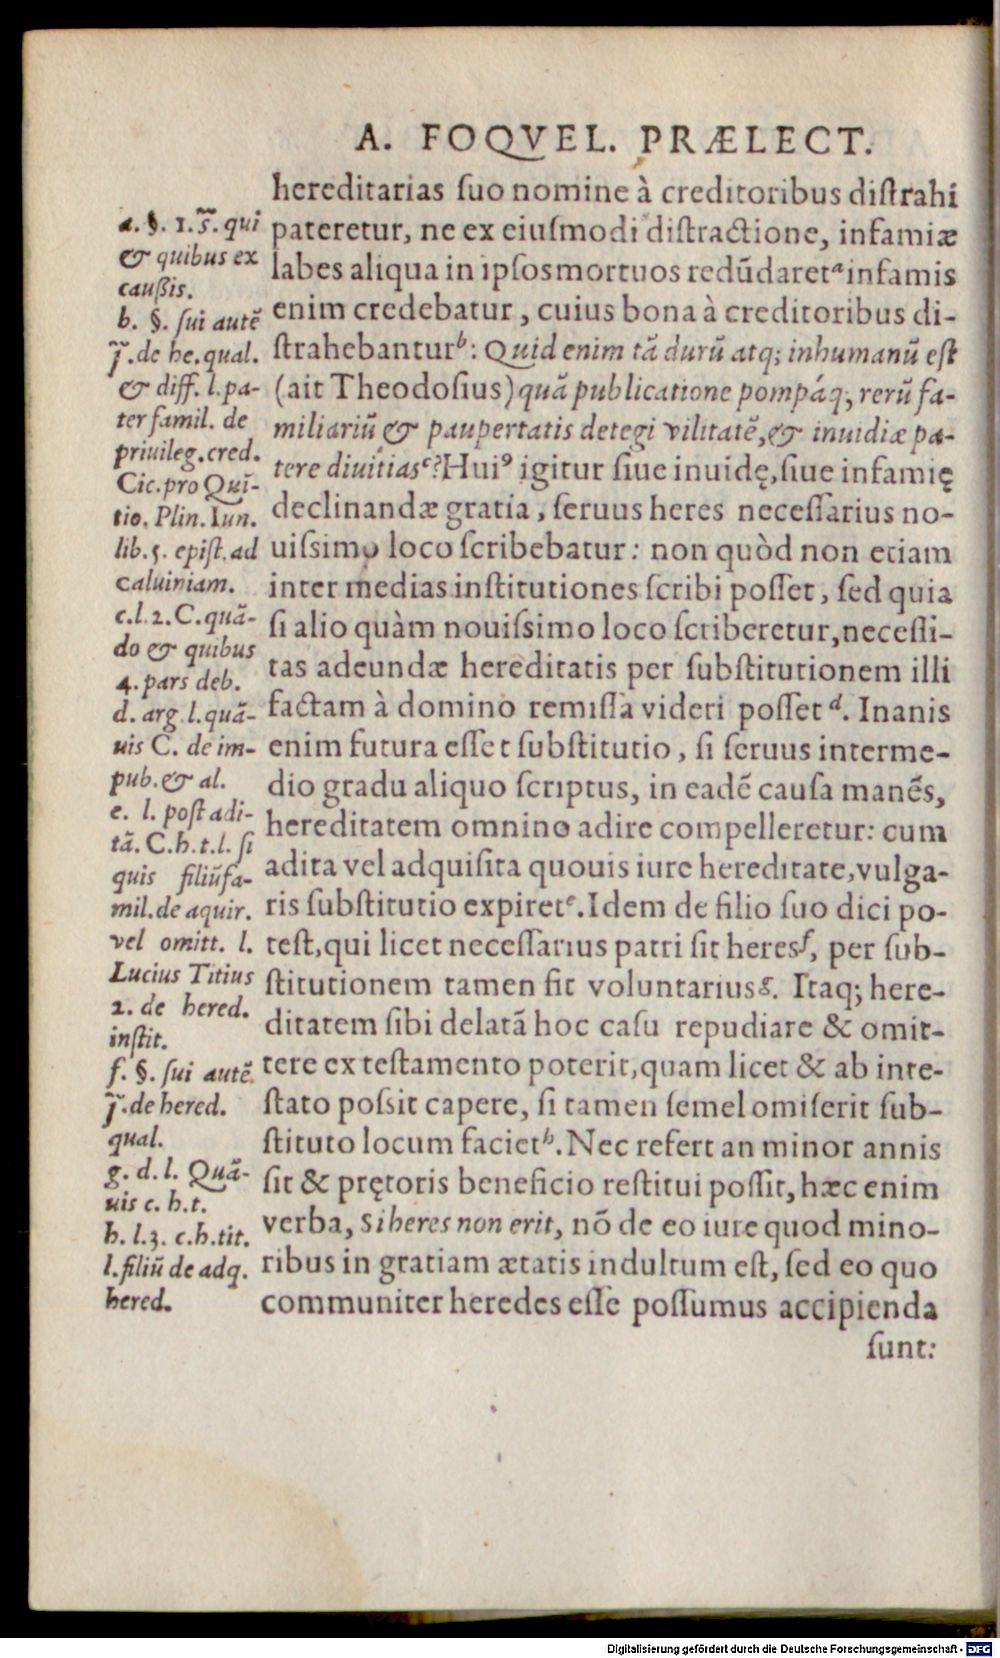 A. FOQVEL. PRÆLECT.
hereditarias ſuo nomine à creditoribus diſtrahi
pateretur, ne ex eiuſmodi diſtractione, infamiæ
labes aliqua in ipſos mortuos redūdaretᵃ infamis
enim credebatur, cuius bona à creditoribus di-
ſtrahebanturᵇ: Quid enim tā durū atq; inhumanū eſt
(ait Theodoſius) quā publicatione pompáq; rerū fa-
miliariū & paupertatis detegi vilitatē, & inuidiæ pa-
tere diuitiasᶜ? Huiꝰ igitur ſiue inuidę, ſiue infamię
declinandæ gratia, ſeruus heres neceſſarius no-
uiſsimo loco ſcribebatur: non quòd non etiam
inter medias inſtitutiones ſcribi poſſet, ſed quia
ſi alio quàm nouiſsimo loco ſcriberetur, neceſſi-
tas adeundæ hereditatis per ſubſtitutionem illi
factam à domino remiſſa videri poſſetᵈ. Inanis
enim futura eſſet ſubſtitutio, ſi ſeruus interme-
dio gradu aliquo ſcriptus, in eadē cauſa manēs,
hereditatem omnino adire compelleretur: cum
adita vel adquiſita quouis iure hereditate, vulga-
ris ſubſtitutio expiretᵉ. Idem de filio ſuo dici po-
teſt, qui licet neceſſarius patri ſit heresᶠ, per ſub-
ſtitutionem tamen fit voluntariusᵍ. Itaq; here-
ditatem ſibi delatā hoc caſu repudiare & omit-
tere ex teſtamento poterit, quam licet & ab inte-
ſtato poſsit capere, ſi tamen ſemel omiſerit ſub-
ſtituto locum facietʰ. Nec refert an minor annis
ſit & prętoris beneficio reſtitui poſſit, hæc enim
verba, Si heres non erit, nō de eo iure quod mino-
ribus in gratiam ætatis indultum eſt, ſed eo quo
communiter heredes eſſe poſſumus accipienda
ſunt:
a. §. 1. s̃. qui
& quibus ex
cauſsis.
b. §. ſui autē
j̃. de he. qual.
& diff. l. pa-
ter famil. de
priuileg. cred.
Cic. pro Quī-
tio. Plin. Iun.
lib. 5. epiſt. ad
Caluiniam.
c. l. 2. C. quā-
do & quibus
4. pars deb.
d. arg. l. quā-
uis C. de im-
pub. & al.
e. l. poſt adi-
tā. C. h. t. l. ſi
quis filiūfa-
mil. de aquir.
vel omitt. l.
Lucius Titius
2. de hered.
inſtit.
f. §. ſui autē.
j̃. de hered.
qual.
g. d. l. Quā-
uis c. h. t.
h. l. 3. c. h. tit.
l. filiū de adq.
hered.
Digitalisierung gefördert durch die Deutsche Forschungsgemeinschaft - DFG